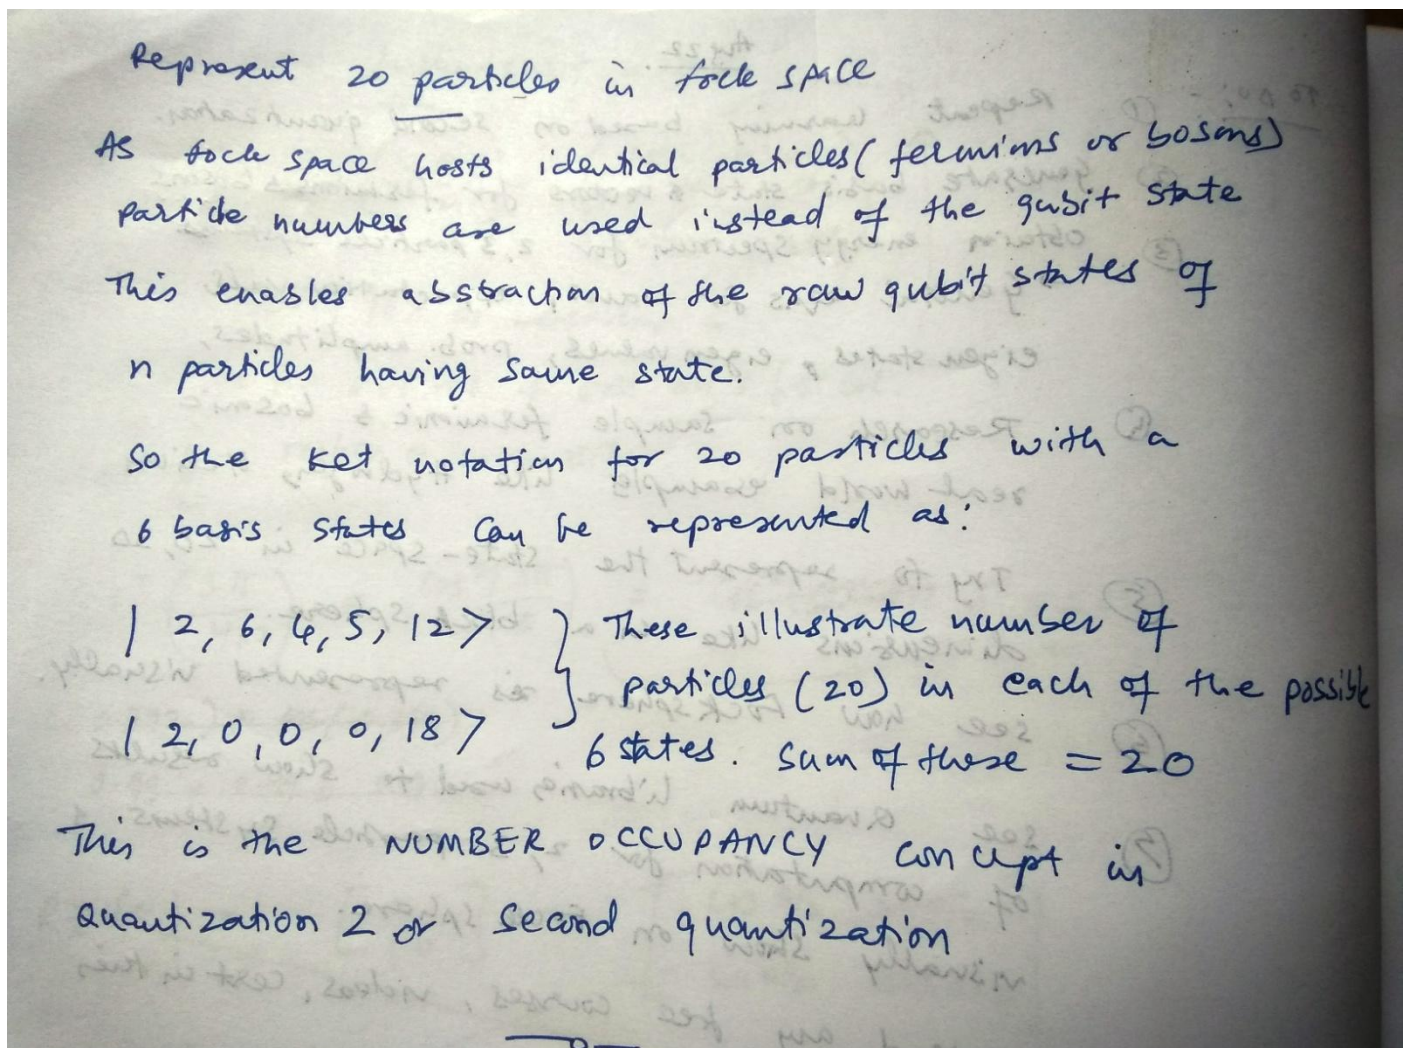 Represent 20 particles in fock space
As fock space hosts identical particles (fermions or bosons)
particle numbers are used instead of the qubit state
This enables abstraction of the raw qubit states of
n particles having same state.
So the ket notation for 20 particles with a
6 basis states can be represented as:
| 2, 6, 4, 5, 12> } These illustrate number of
particles (20) in each of the possible
| 2, 0, 0, 0, 18>
6 states. Sum of these = 20
This is the NUMBER OCCUPANCY concept in
Quantization 2 or second quantization